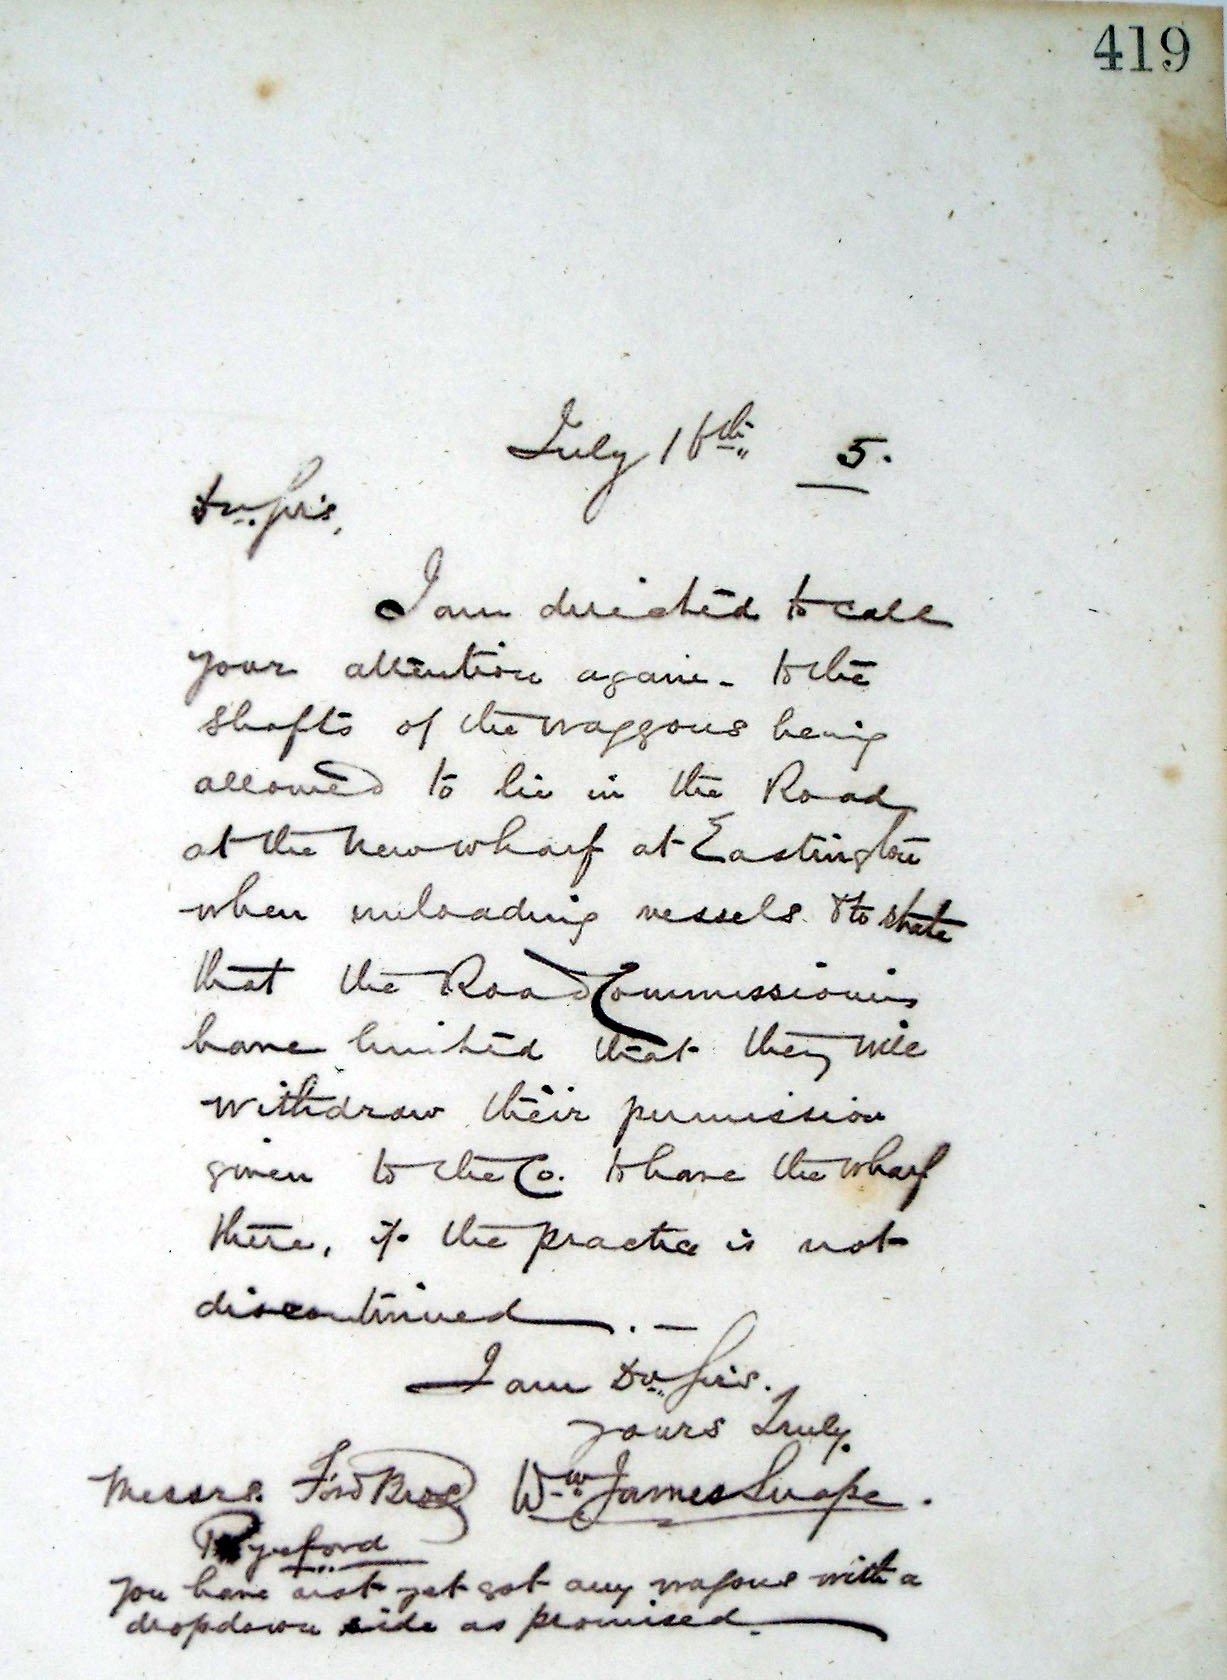 419
July 16th 5.
Dr. Sirs,
I am directed to call
your attention again - to the
shafts of the waggons being
allowed to lie in the Road
at the New wharf at Eastington
when unloading vessels & to state
that the Road Commissioners
have hinted that they will
withdraw their permission
given to the Co. to have the wharf
there, if the practice is not
discontinued. -
I am Dr. Sirs.
Yours Truly.
Messrs. Ford Bros Wm James Snape.
Ryeford
You have not yet got any wagons with a
dropdown side as promised.